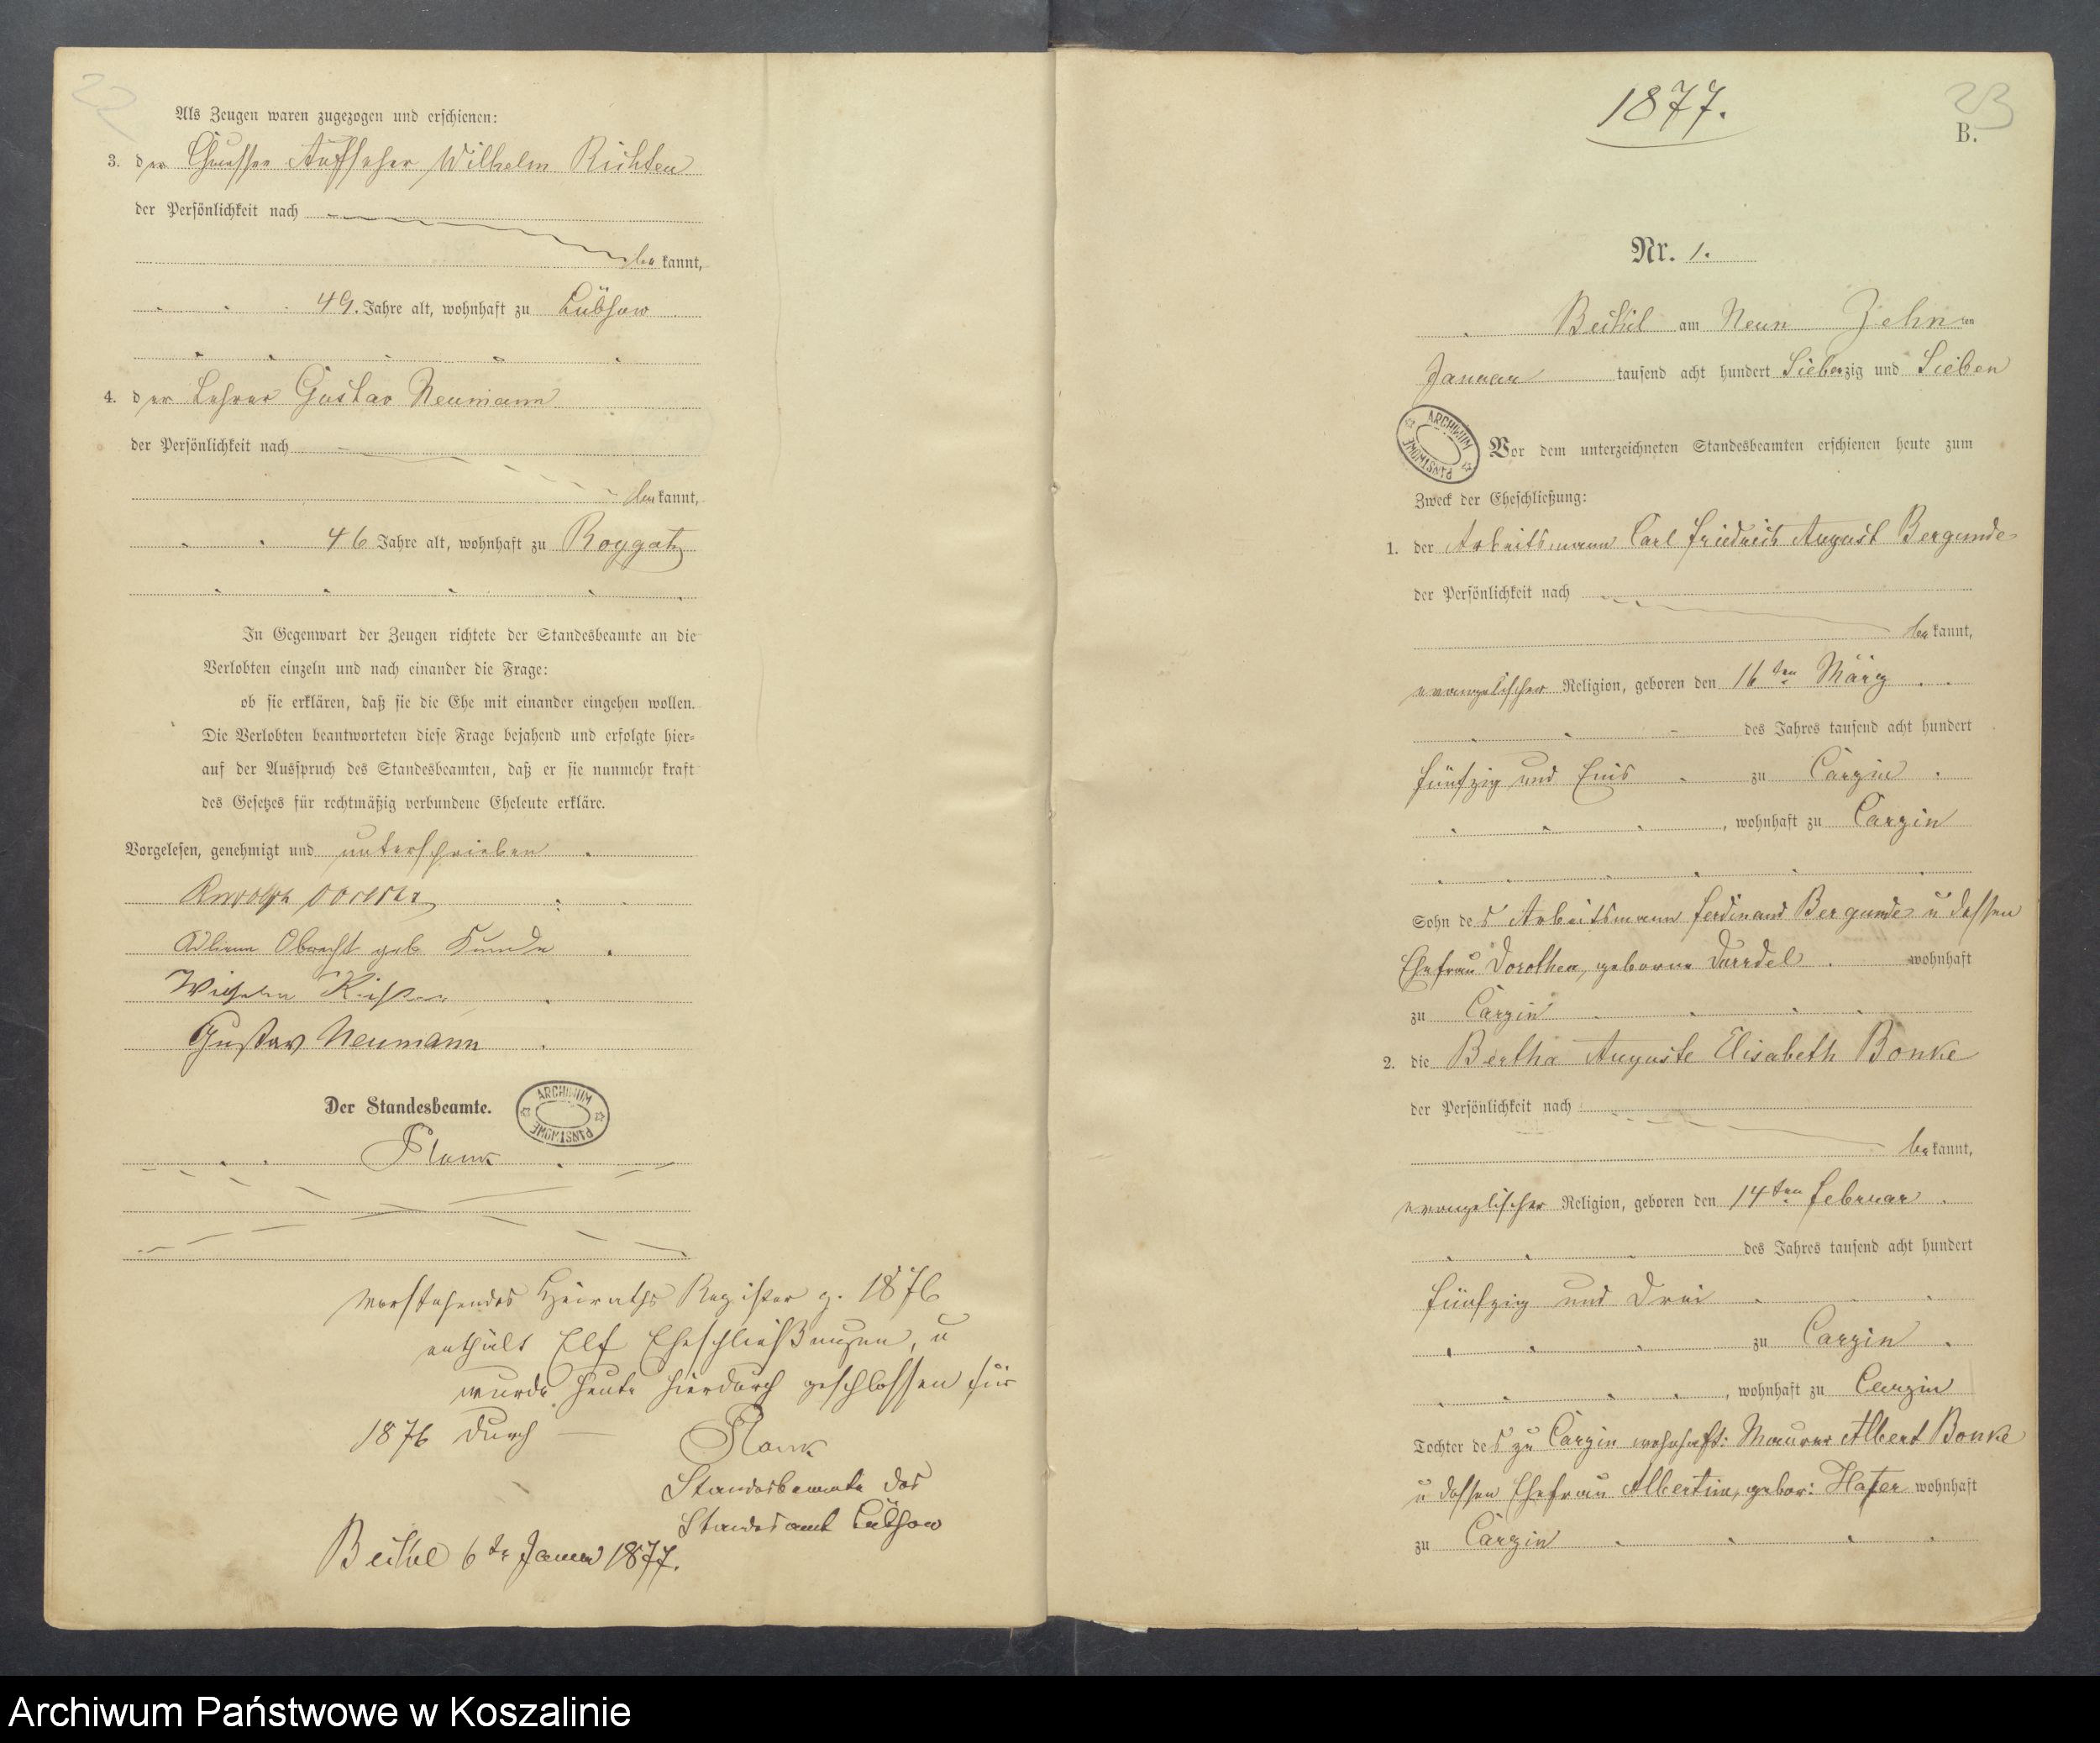 22
Als Zeugen waren zugezogen und erschienen:
3. der Chaussee Aufseher Wilhelm Richter
der Persönlichkeit nach
bekannt,
49. Jahre alt, wohnhaft zu Lübsow
4. der Lehrer Gustav Neumann
der Persönlichkeit nach
bekannt,
46 Jahre alt, wohnhaft zu
In Gegenwart der Zeugen richtete der Standesbeamte an die
Verlobten einzeln und nach einander die Frage:
ob sie erklären, daß sie die Ehe mit einander eingehen wollen.
Die Verlobten beantworteten diese Frage bejahend und erfolgte hier-
auf der Ausspruch des Standesbeamten, daß er sie nunmehr kraft
des Gesetzes für rechtmäßig verbundene Eheleute erkläre.
Vorgelesen, genehmigt und unterschrieben
geb.
Wilhelm Richter
Gustav Neumann
Der Standesbeamte.
ARCHIWUM PAŃSTWOWE
Plank
Vorstehendes Heiraths Register p. 1876
enthält Elf Eheschließungen, u
wurde heute hierdurch geschlossen für
1876 durch
Plank
Standesbeamte des
Standesamt Lübsow
6te Januar 1877.
1877.
23
B.
Nr. 1.
am Neun Zehnten
Januar tausend acht hundert Siebenzig und Sieben
ARCHIWUM PAŃSTWOWE
Vor dem unterzeichneten Standesbeamten erschienen heute zum
Zweck der Eheschließung:
1. der Arbeitsmann Carl Friedrich August Bergunde
der Persönlichkeit nach
bekannt,
evangelischer Religion, geboren den 16ten März
des Jahres tausend acht hundert
fünfzig und Eins zu Carzin
, wohnhaft zu Carzin
Sohn des Arbeitsmann Ferdinand Bergunde u dessen
Ehefrau Dorothea, geborne wohnhaft
zu Carzin
2. die Bertha Auguste Elisabeth Bonke
der Persönlichkeit nach
bekannt,
evangelischer Religion, geboren den 14ten Februar
des Jahres tausend acht hundert
fünfzig und Drei
zu Carzin
, wohnhaft zu Carzin
Tochter des zu Carzin wohnhaft: Maurer Albert Bonke
u dessen Ehefrau Albertine, gebor: Hafer wohnhaft
zu Carzin
Archiwum Państwowe w Koszalinie